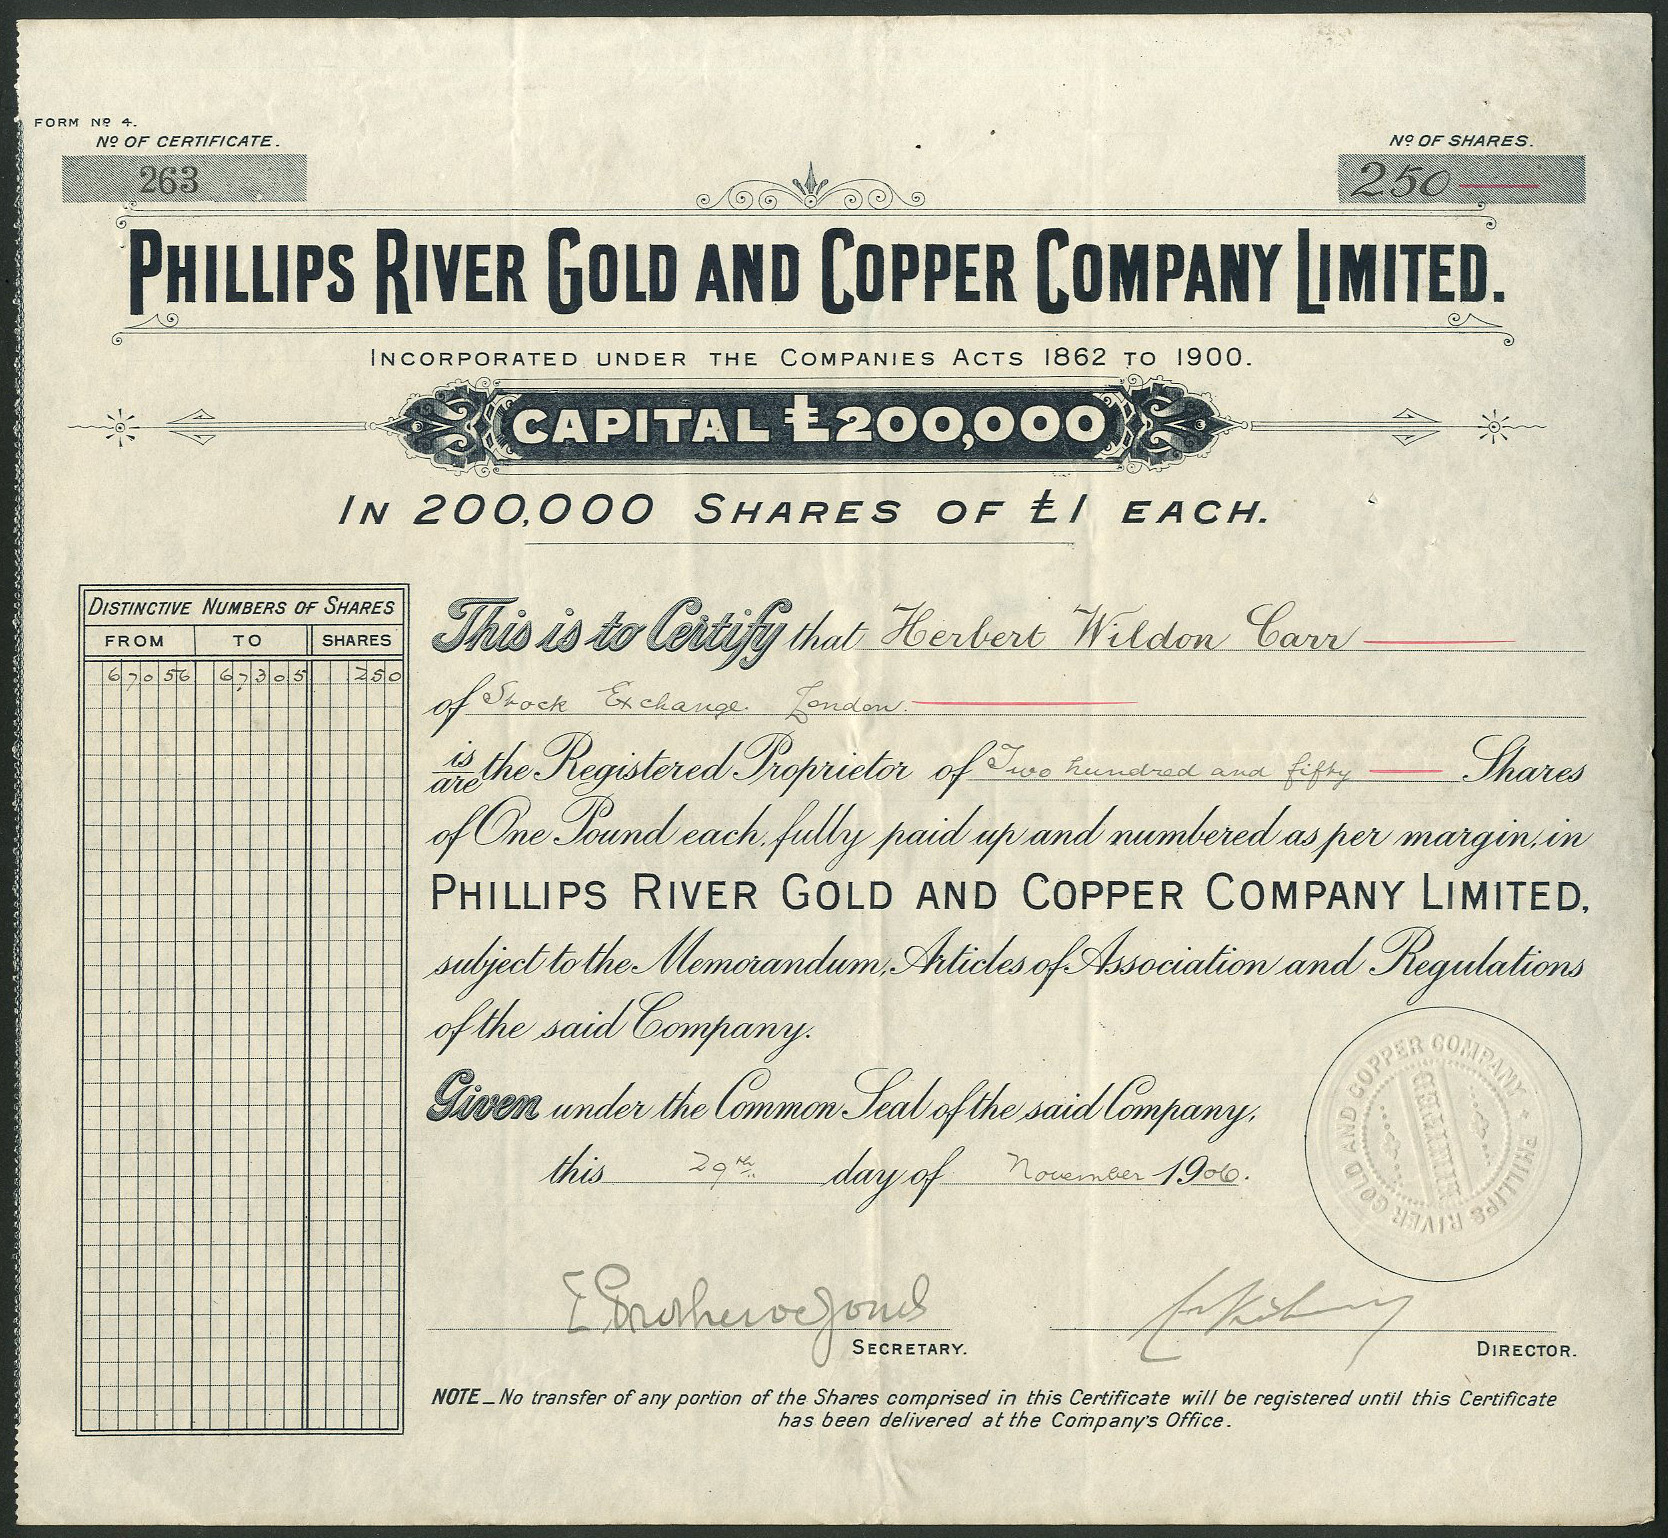 FORM No 4.
No OF CERTIFICATE.
No OF SHARES.
263
250
PHILLIPS RIVER GOLD AND COPPER COMPANY LIMITED.
INCORPORATED UNDER THE COMPANIES ACTS 1862 TO 1900.
CAPITAL £200,000
IN 200,000 SHARES OF £1 EACH.
DISTINCTIVE NUMBERS OF SHARES
FROM TO SHARES
67056 67305 250
This is to Certify that Herbert Wildon Carr
of Stock Exchange. London.
is
are the Registered Proprietor of Two hundred and fifty Shares
of One Pound each, fully paid up and numbered as per margin, in
PHILLIPS RIVER GOLD AND COPPER COMPANY LIMITED,
subject to the Memorandum, Articles of Association and Regulations
of the said Company.
Given under the Common Seal of the said Company,
this 29th day of November 1906.
PHILLIPS RIVER GOLD AND COPPER COMPANY
LIMITED
SECRETARY.
DIRECTOR.
NOTE_ No transfer of any portion of the Shares comprised in this Certificate will be registered until this Certificate
has been delivered at the Company's Office.